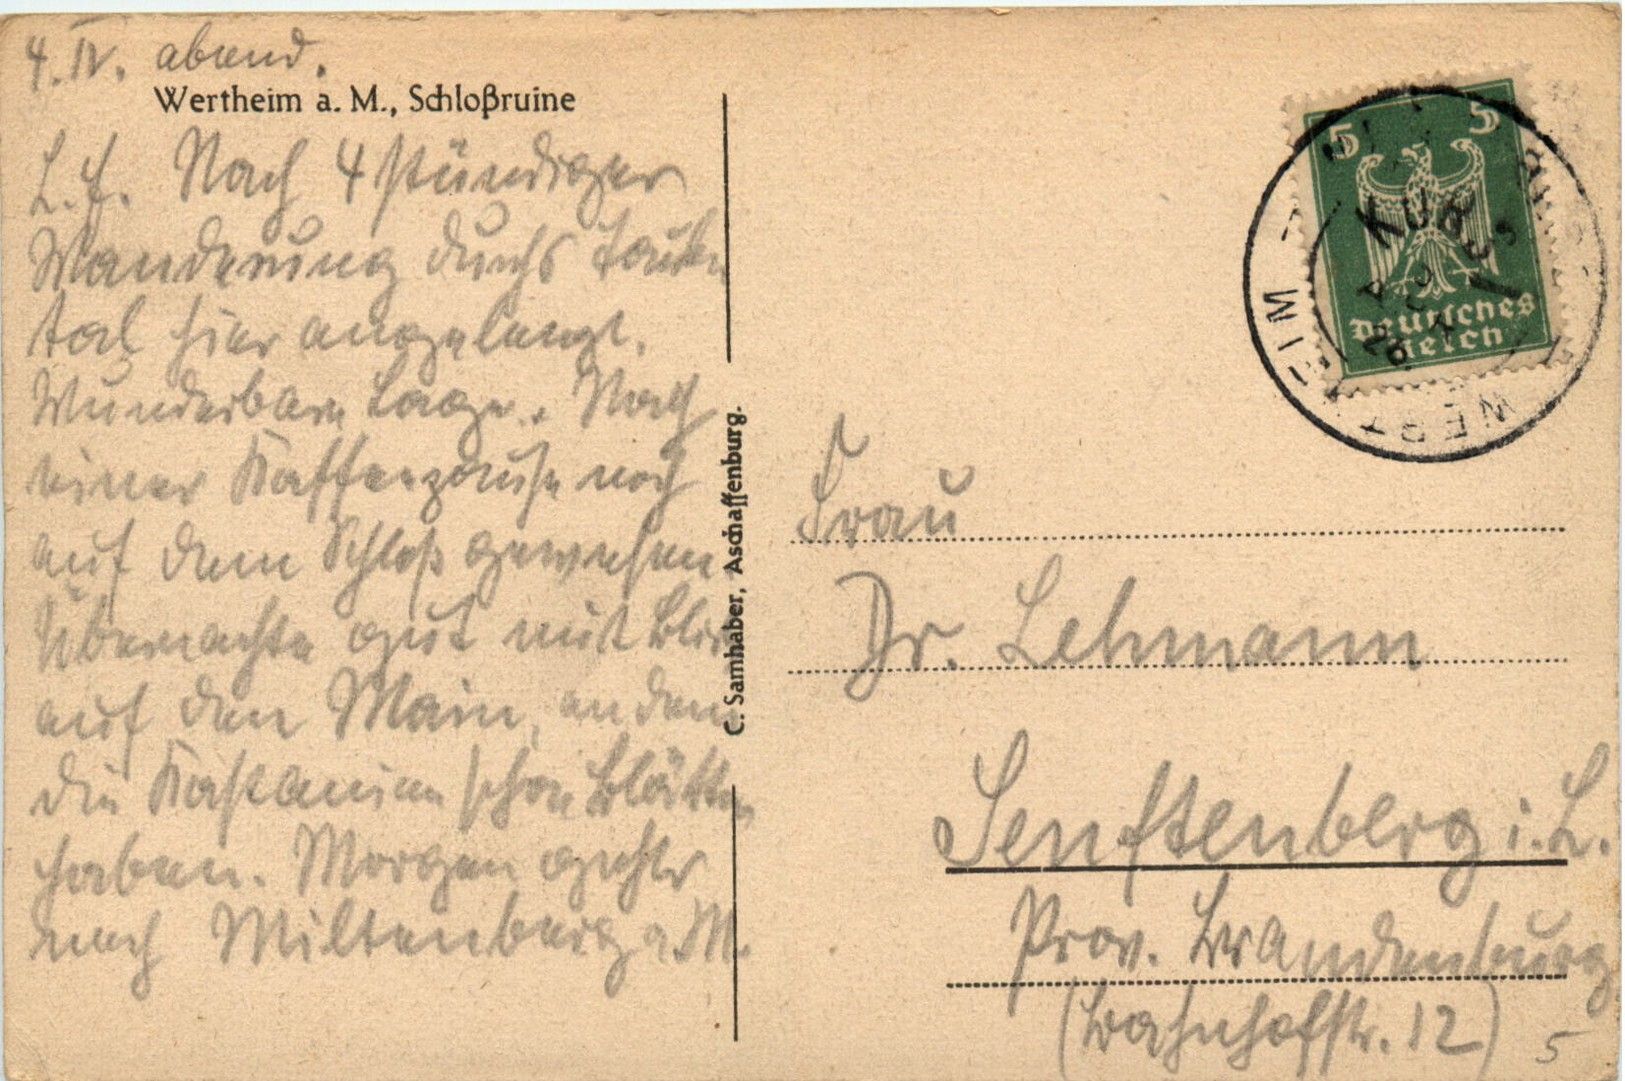 4. IV. abend.
Wertheim a. M., Schloßruine
L. F. Nach 4 stündiger
Wanderung durchs Tauber
tal hier angelangt.
Wunderbare Lage. Nach
einer Kaffeepause noch
auf dem Schloß gewesen
Übernachte gut mit Blick
auf den Main, an dem
die Kastanien schon Blätter
haben. Morgen gehts
nach Miltenberg a. M.
C. Samhaber, Aschaffenburg.
5 5
Deutsches
Reich
KURS
WERTHEIM
Frau
Dr. Lehmann
Senftenberg i. L.
Prov. Brandenburg
(Bahnhofstr. 12)
5